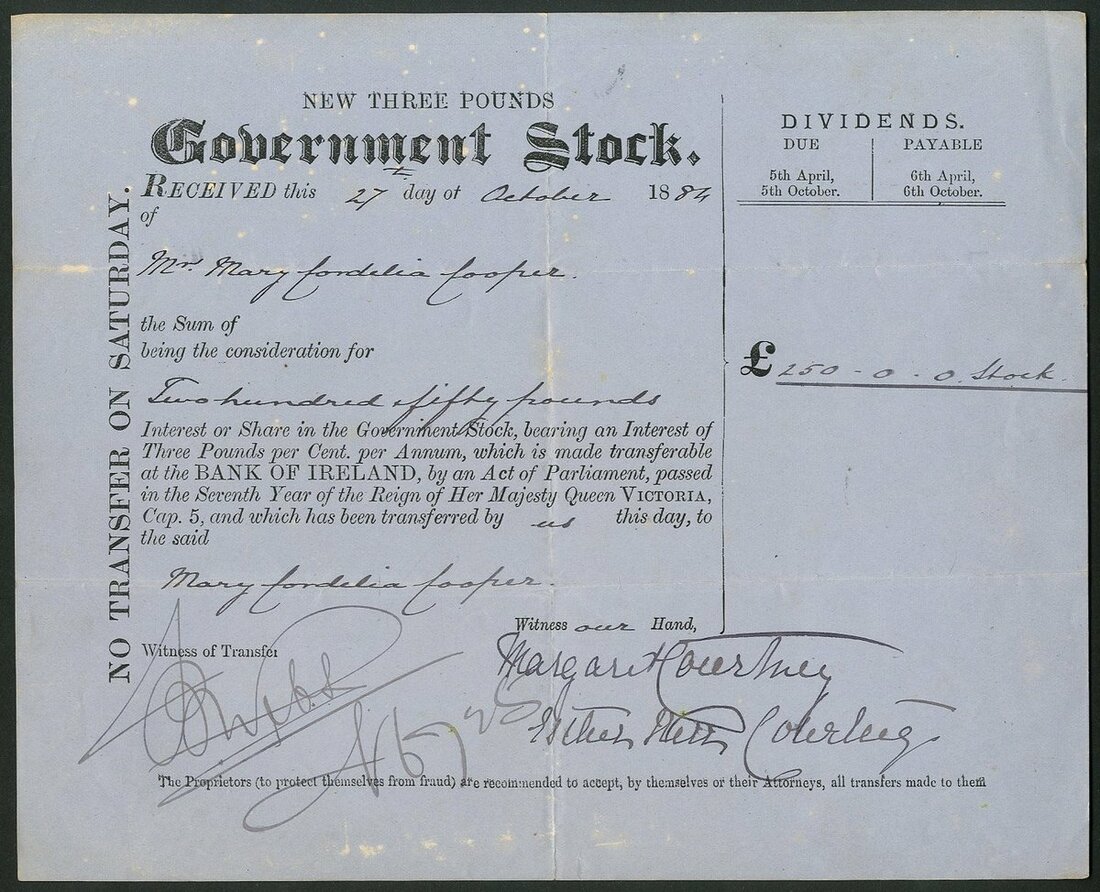 NEW THREE POUNDS
Government Stock.
RECEIVED this 27th day of October 1884
of
Mrs. Mary Cordelia Cooper.
the Sum of
being the consideration for
Two hundred & fifty pounds
Interest or Share in the Government Stock, bearing an Interest of
Three Pounds per Cent. per Annum, which is made transferable
at the BANK OF IRELAND, by an Act of Parliament, passed
in the Seventh Year of the Reign of Her Majesty Queen VICTORIA,
Cap. 5, and which has been transferred by us this day, to
the said
Mary Cordelia Cooper.
Witness our Hand,
Margaret Courtney
Esther Courtney
Witness of Transfer
The Proprietors (to protect themselves from fraud) are recommended to accept, by themselves or their Attorneys, all transfers made to them
NO TRANSFER ON SATURDAY.
DIVIDENDS.
DUE PAYABLE
5th April, 6th April,
5th October. 6th October.
£250-0-0. Stock.